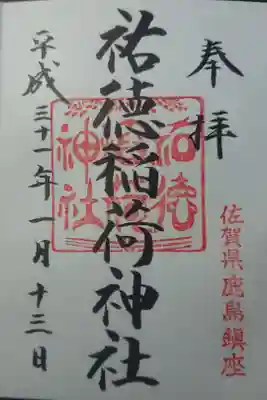 奉拝
佐賀県鹿島鎮座
祐徳稲荷神社
平成三十一年一月十三日